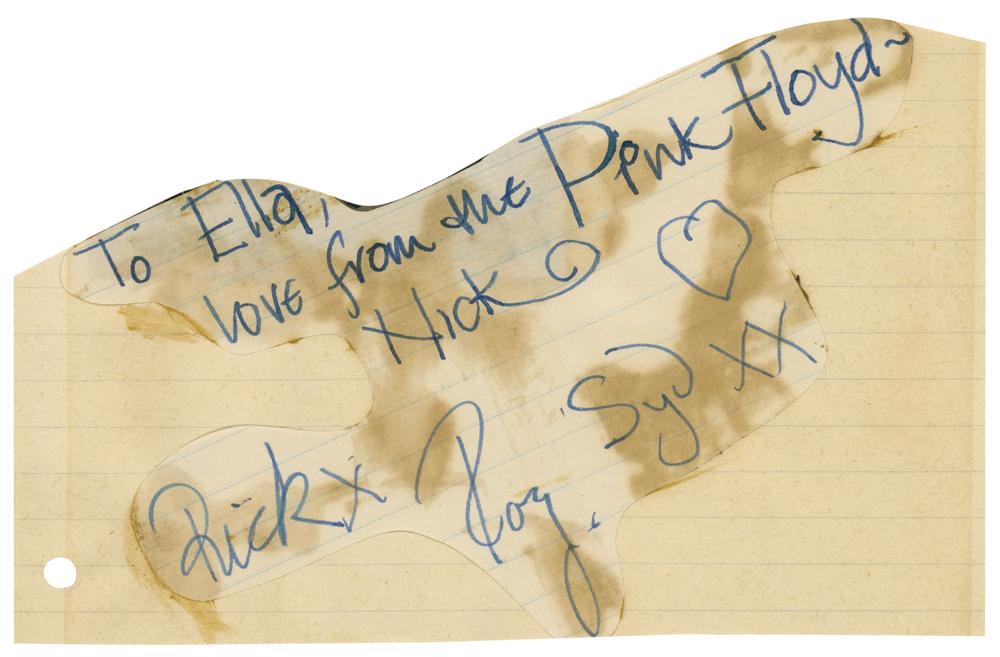 To Ella,
love from the Pink Floyd~
Nick
Syd XX
Rick x
Rog.